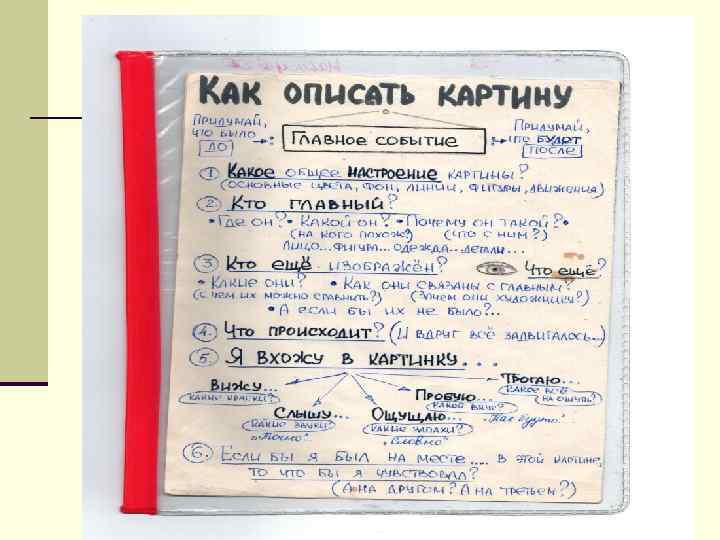 Как описать картину
Придумай, что было до → Главное событие → Придумай, что будет после
1 Какое общее настроение картины?
(основные цвета, фон, линии, фигуры, движения)
2. Кто главный?
• Где он? • Какой он? • Почему он такой? •
(на кого похож?) (что с ним?)
лицо... фигура... одежда... детали...
3. Кто ещё изображён? Что ещё?
• Какие они? • Как они связаны с главным?
(с чем их можно сравнить?) (Зачем они художнику?)
• А если бы их не было?..
4. Что происходит? (И вдруг всё задвигалось...)
5. Я вхожу в картинку...
Вижу... Пробую... Трогаю...
какие краски? какой вкус? какое всё на ощупь?
Слышу... Ощущаю... "Как будто"
какие звуки? какие запахи?
"Точно" "Словно"
6. Если бы я был на месте .... в этой картине,
то что бы я чувствовал?
(А на другом? А на третьем?)